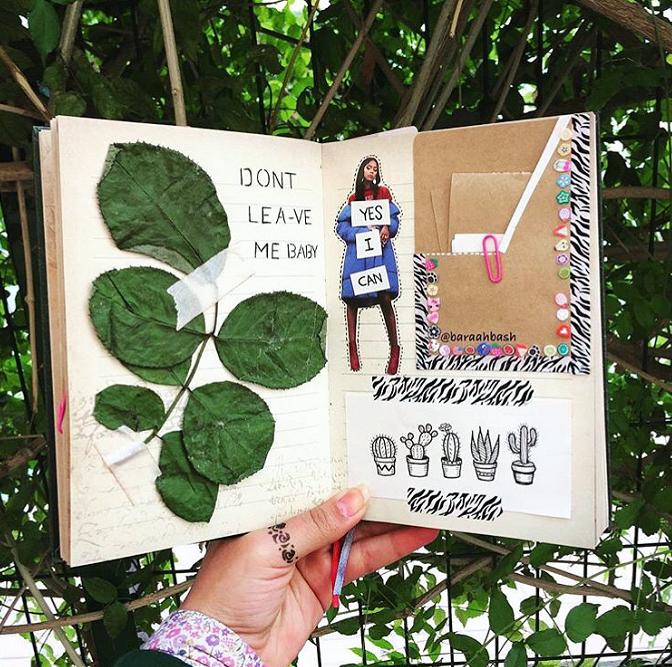 DONT
LEA-VE
ME BABY
YES
I
CAN
@baraahbash